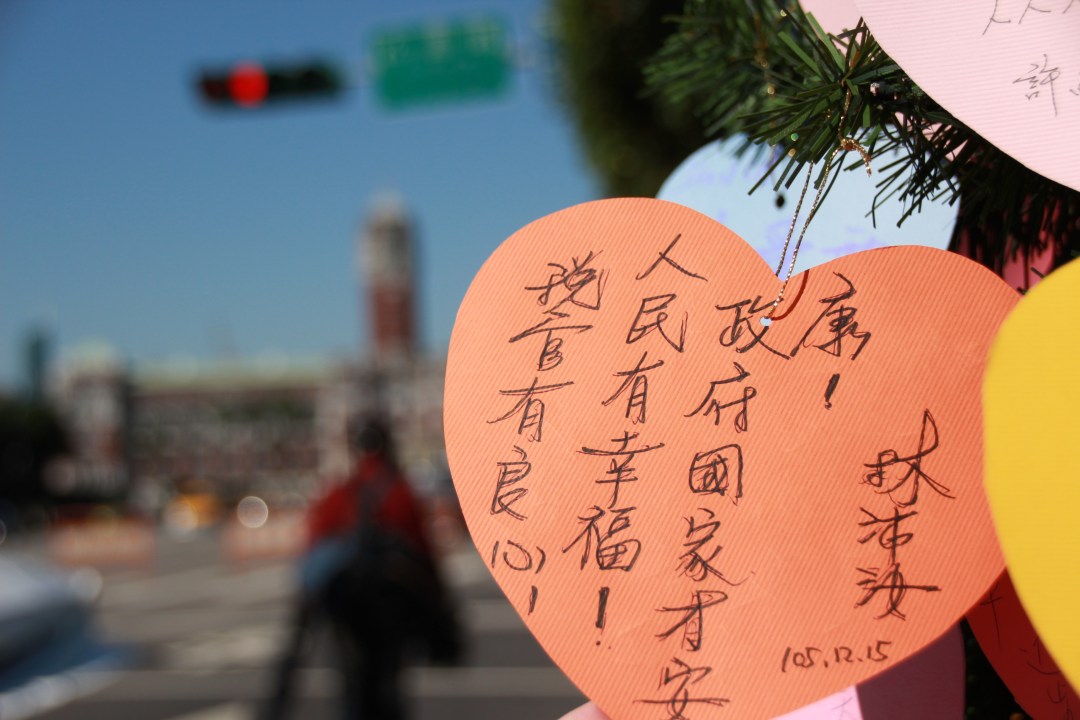 稅官有良心!
人民有幸福!
政府國家才安
康!
林沛汝
105.12.15
許